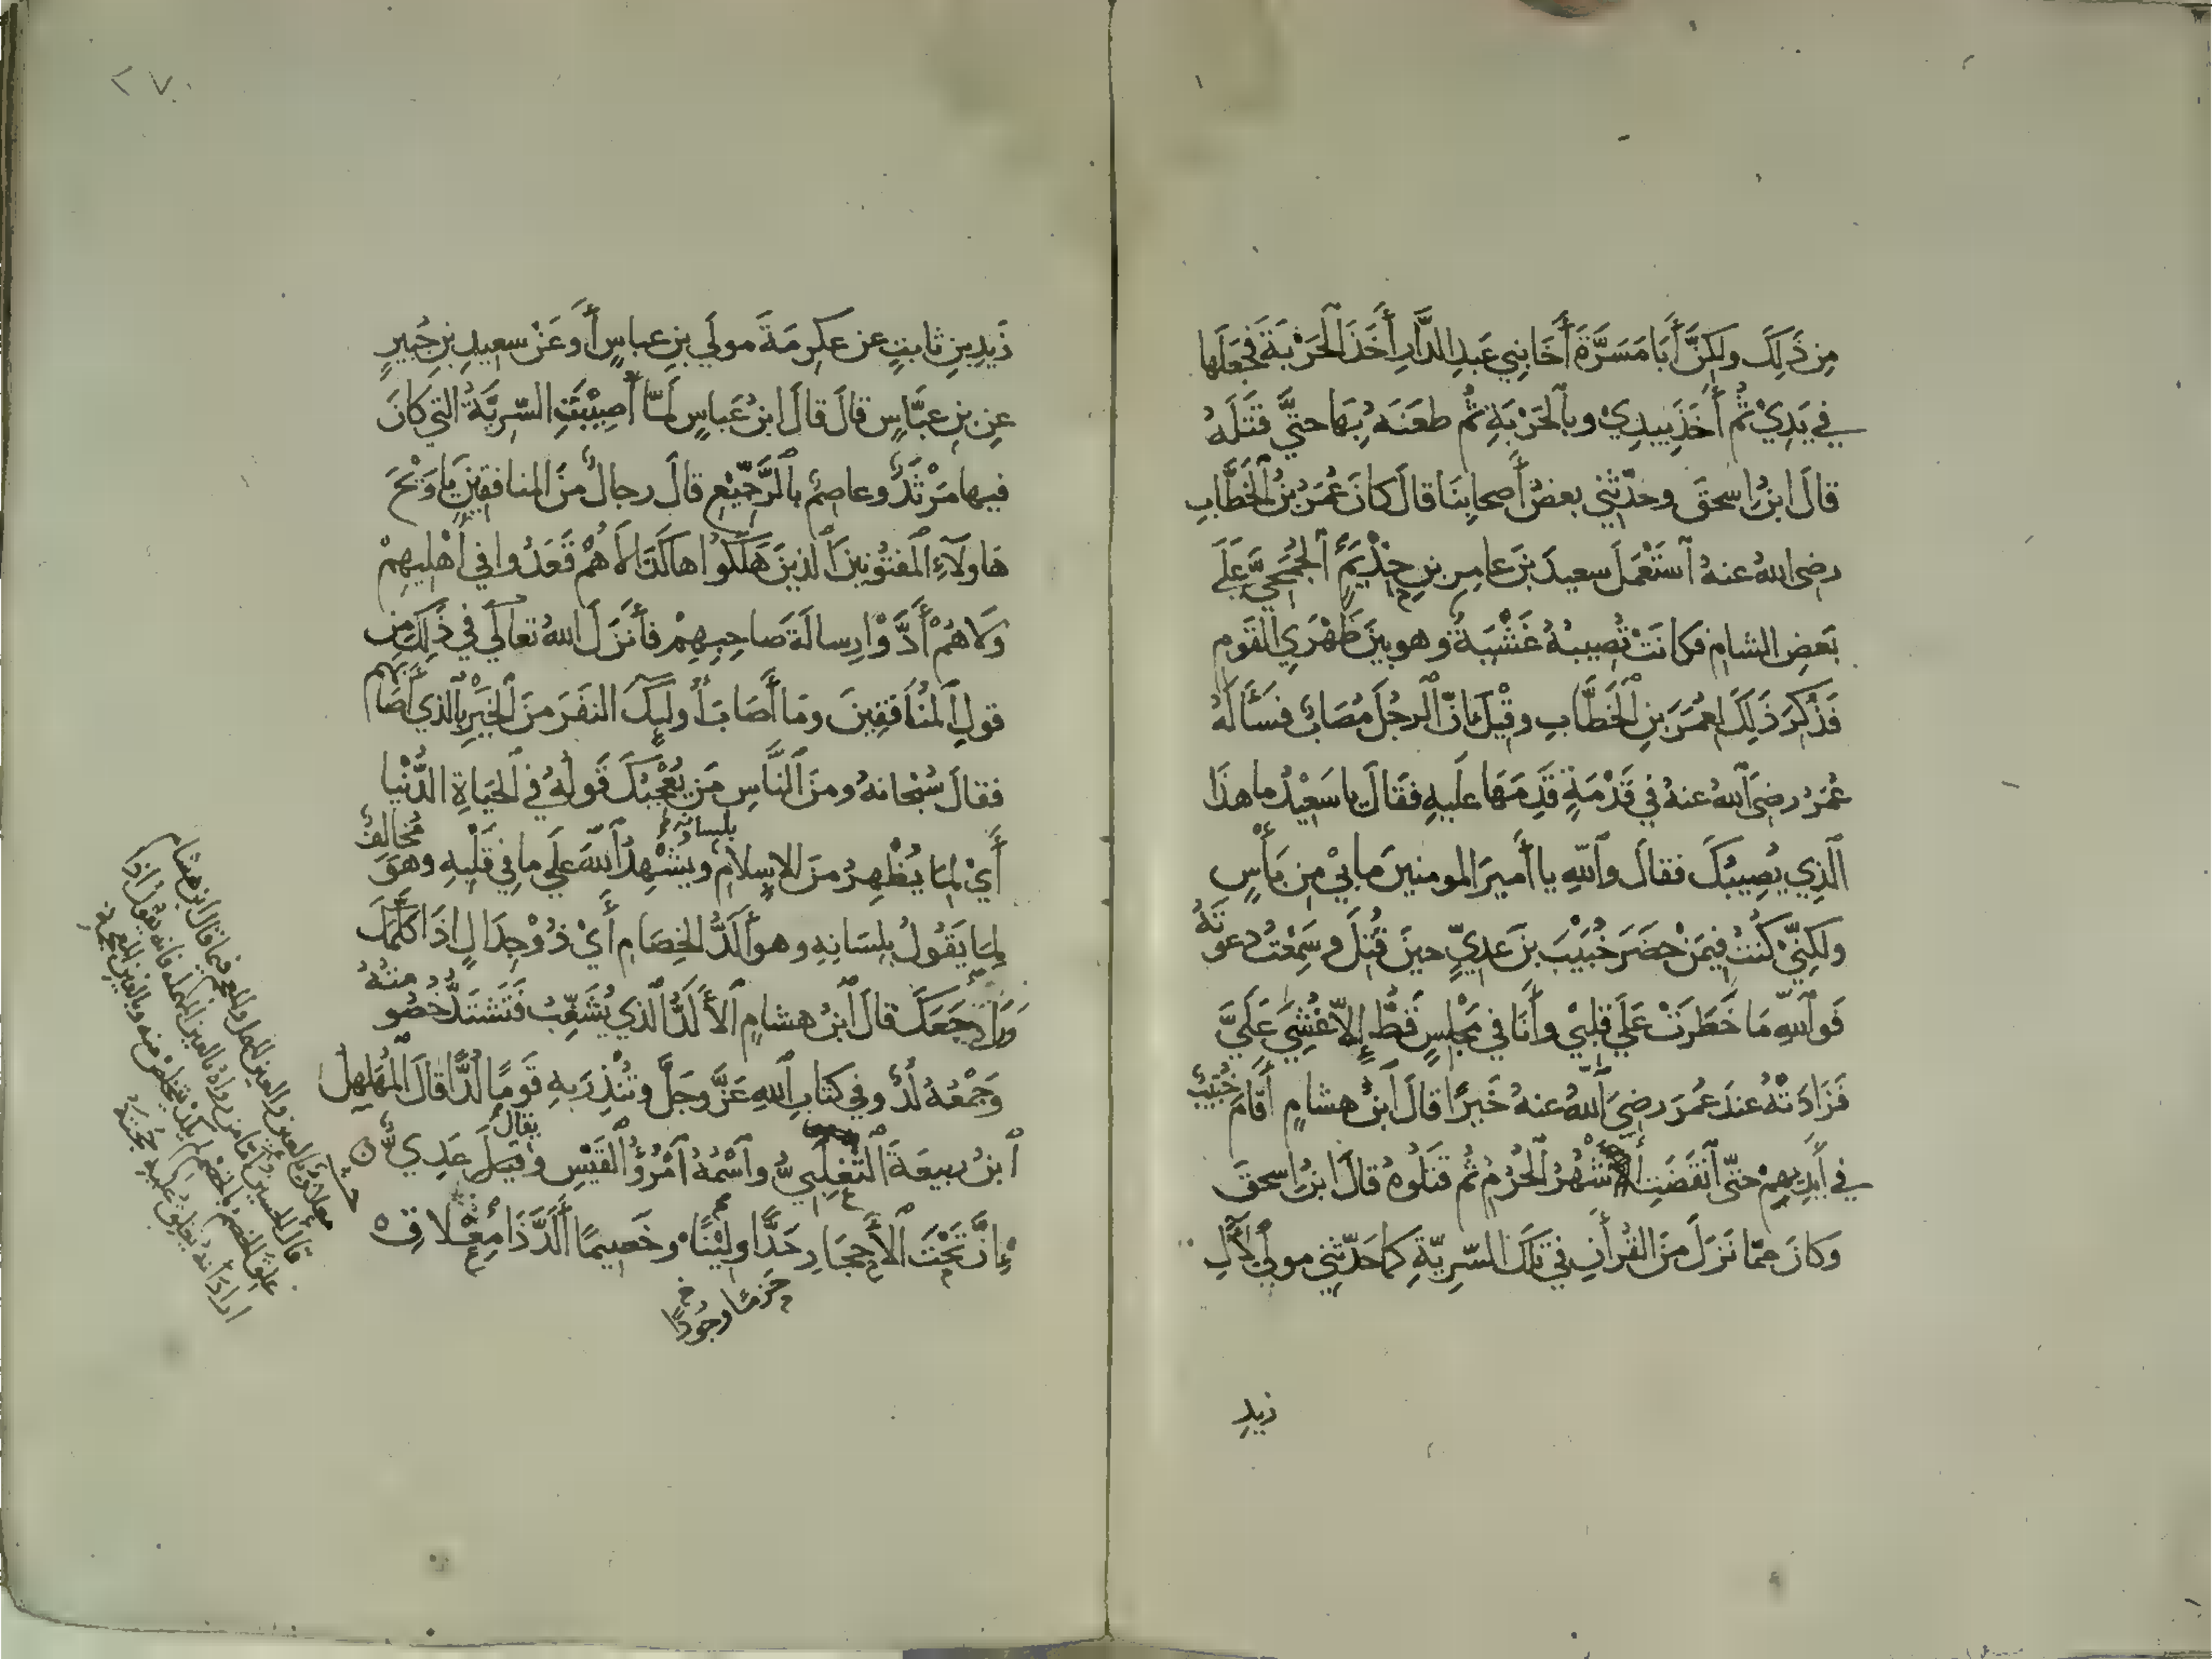 مِن ذَلِكَ ولكِنَّ أَبَا مَسَرَّةَ أَخَا بَنِي عَبدِ الدَّارِ أَخَذَ الحَرْبَةَ فَجَعَلَها
في يَدِيْ ثُمَّ أَخَذَ بِيدِيْ وبالحَرْبَةِ ثُم طعَنَهُ بِهَا حتَّى قَتَلَهُ
قالَ ابنُ اسحقَ وحدَّثني بعضُ أَصحابِنَا قال كانَ عُمَرُ بنُ الخَطَّابِ
رضى اللهُ عنهُ ٱستَعْمَلَ سعيدَ بنَ عامِرِ بنِ حِذْيَمٍ الجُمَحِيَّ عَلَى
بَعضِ الشامِ فكانَتْ تُصِيبهُ غَشْيَةٌ وهو بينَ ظَهْرَيِ القَومِ
فَذُكِرَ ذَلِكَ لعُمَرَ بنِ الخَطَّابِ وقِيْلَ إنّ الرجُلَ مُصَابٌ فسَأَلَهُ
عُمَرُ رضىَ اللهُ عنهُ في قَدْمَةٍ قَدِمَهَا عليهِ فقَالَ يا سَعِيْدُ ما هذَا
الَّذِي يُصِيبُكَ فقالَ واللهِ يا أَميرَ المومنينَ ما بِيْ مِن بَأْسٍ
ولكِنِّيْ كُنتُ فيمَنْ حضَرَ خُبَيْبَ بنَ عَدِيٍّ حينَ قُتِلَ وسَمِعْتُ دعوتَهُ
فَواللهِ مَا خَطَرَتْ عَلَى قَلبِيْ وأَنَا في مَجْلِسٍ قَطُّ إلاّ غُشِيَ عَلَيَّ
فَزَادَتْهُ عندَ عُمَرَ رضيَ اللهُ عنهُ خَيرًا قالَ ابنُ هشامٍ أَقَامَ خُبَيبٌ
في أَيدِيهِمْ حتّى انقَضَتِ الأَشْهُرُ الحُرُمُ ثُم قَتَلُوهُ قالَ ابنُ اسحقَ
وَكانَ مِمّا نَزَلَ مِنَ القُرأنِ في تِلكَ السَّرِيّةِ كما حَدّثني مولًى لآلِ
زيدِ
٢٧٠
زَيدِ بنِ ثابتٍ عن عكرِمَةَ مولَى بنِ عباسٍ أَو عَنْ سعيدِ بنِ جُبَيرٍ
عنِ بنِ عبَّاسٍ قالَ قالَ ابنُ عَباسٍ لمَّا أُصِيْبَتِ السّرِيَّةُ التي كانَ
فيها مَرْثَدٌ وعاصِمٌ بالرَّجِيْعِ قالَ رجالٌ منَ المنافقِينَ يا وَيْحَ
هَاولَآءِ المَفتُونينَ الذينَ هَلَكُوا هاكَذَا لا هُمْ قَعَدُوا في أَهْلِيهِمْ
وَلا هُمْ أَدَّوْا رِسالَةَ صَاحِبِهِمْ فأَنزَلَ اللهُ تعالَى في ذَلِكَ مِن
قولِ المُنَافِقِينَ ومَا أَصَابَ أُولَيِكَ النفَرَ منَ الخَيْرِ بالذي أَصَابَهُم
فقالَ سُبْحَانهُ ومنَ النَّاسِ مَن يُعْجِبُكَ قَولُهُ في الحَيَاةِ الدُّنْيا
أَيْ لِمَا يُظْهِرُ منَ الاِسلامِ بلِسانهِ ويُشْهِدُ اللهَ علَى ما في قَلْبِهِ وهوَ مُخَالِفٌ
لِمَا يَقُولُ بلِسَانِهِ وهو أَلَدُّ الخِصَامِ أَيْ ذُوْ جِدَالٍ اذَا كَلَّمَكَ
وَرَاجَعَكَ قالَ ابنُ هشامٍ الأَلَدُّ الذي يُشَغِّبُ فَتَشتَدُّ خُصُومتُهُ
وَجَمْعُهُ لُدٌّ وفي كتابِ اللهِ عَزَّ وجَلَّ وتُنْذِرَ بهِ قَومًا لُدًّا قالَ المُهَلهِلُ
ٱبنُ ربيعَةَ التَّغْلِبيُّ واسْمُهُ امْرُؤُ القَيْسِ ويقالُ عَدِيٌّ ن
إنَّ تَحْتَ الأَحجَارِ حَدًّا ولِيْنًا وخَصِيمًا أَلَدَّ ذَا مِغْلاقِ
حَزمًا وجُودًا